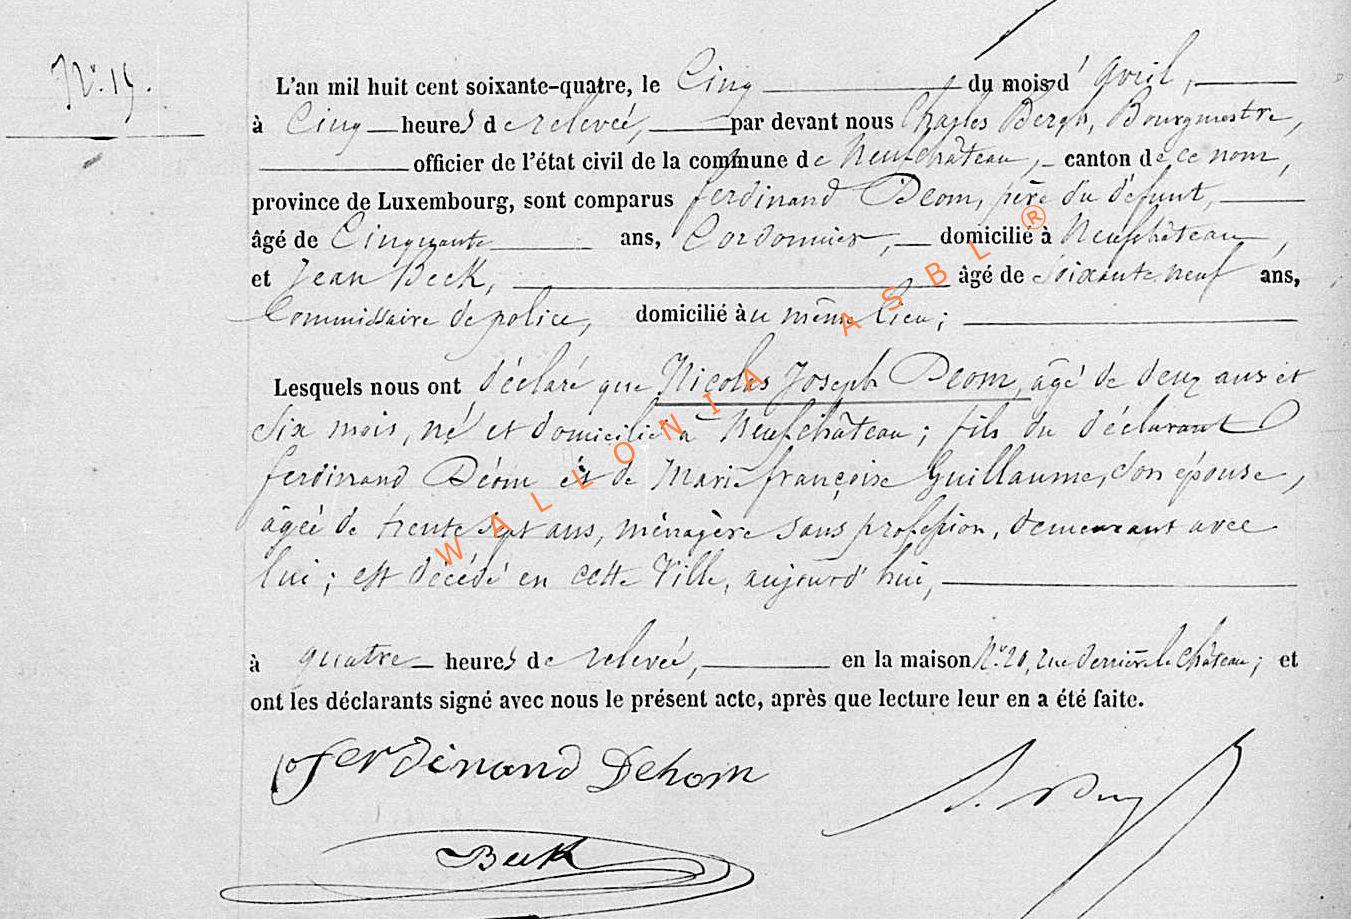 N° 15.
L'an mil huit cent soixante-quatre, le Cinq du mois d'avril,
à Cinq heures de relevée, par devant nous Charles Bergh, Bourgmestre,
officier de l'état civil de la commune de Neufchâteau, canton de ce nom,
province de Luxembourg, sont comparus ferdinand Déom, père du défunt,
âgé de Cinquante ans, Cordonnier, domicilié à Neufchâteau,
et Jean Beck, âgé de soixante neuf ans,
Commissaire de police, domicilié au même lieu;
Lesquels nous ont déclaré que Nicolas Joseph Déom, âgé de deux ans et
six mois, né et domicilié à Neufchâteau; fils du déclarant
ferdinand Déom et de Marie françoise Guillaume, son épouse,
âgée de trente sept ans, ménagère sans profession, demeurant avec
lui; est décédé en cette Ville, aujourd'hui,
à quatre heures de relevée, en la maison N° 20, rue derrière le château; et
ont les déclarants signé avec nous le présent acte, après que lecture leur en a été faite.
ferdinand Dehom
Beck
WALLONIA ASBL ®